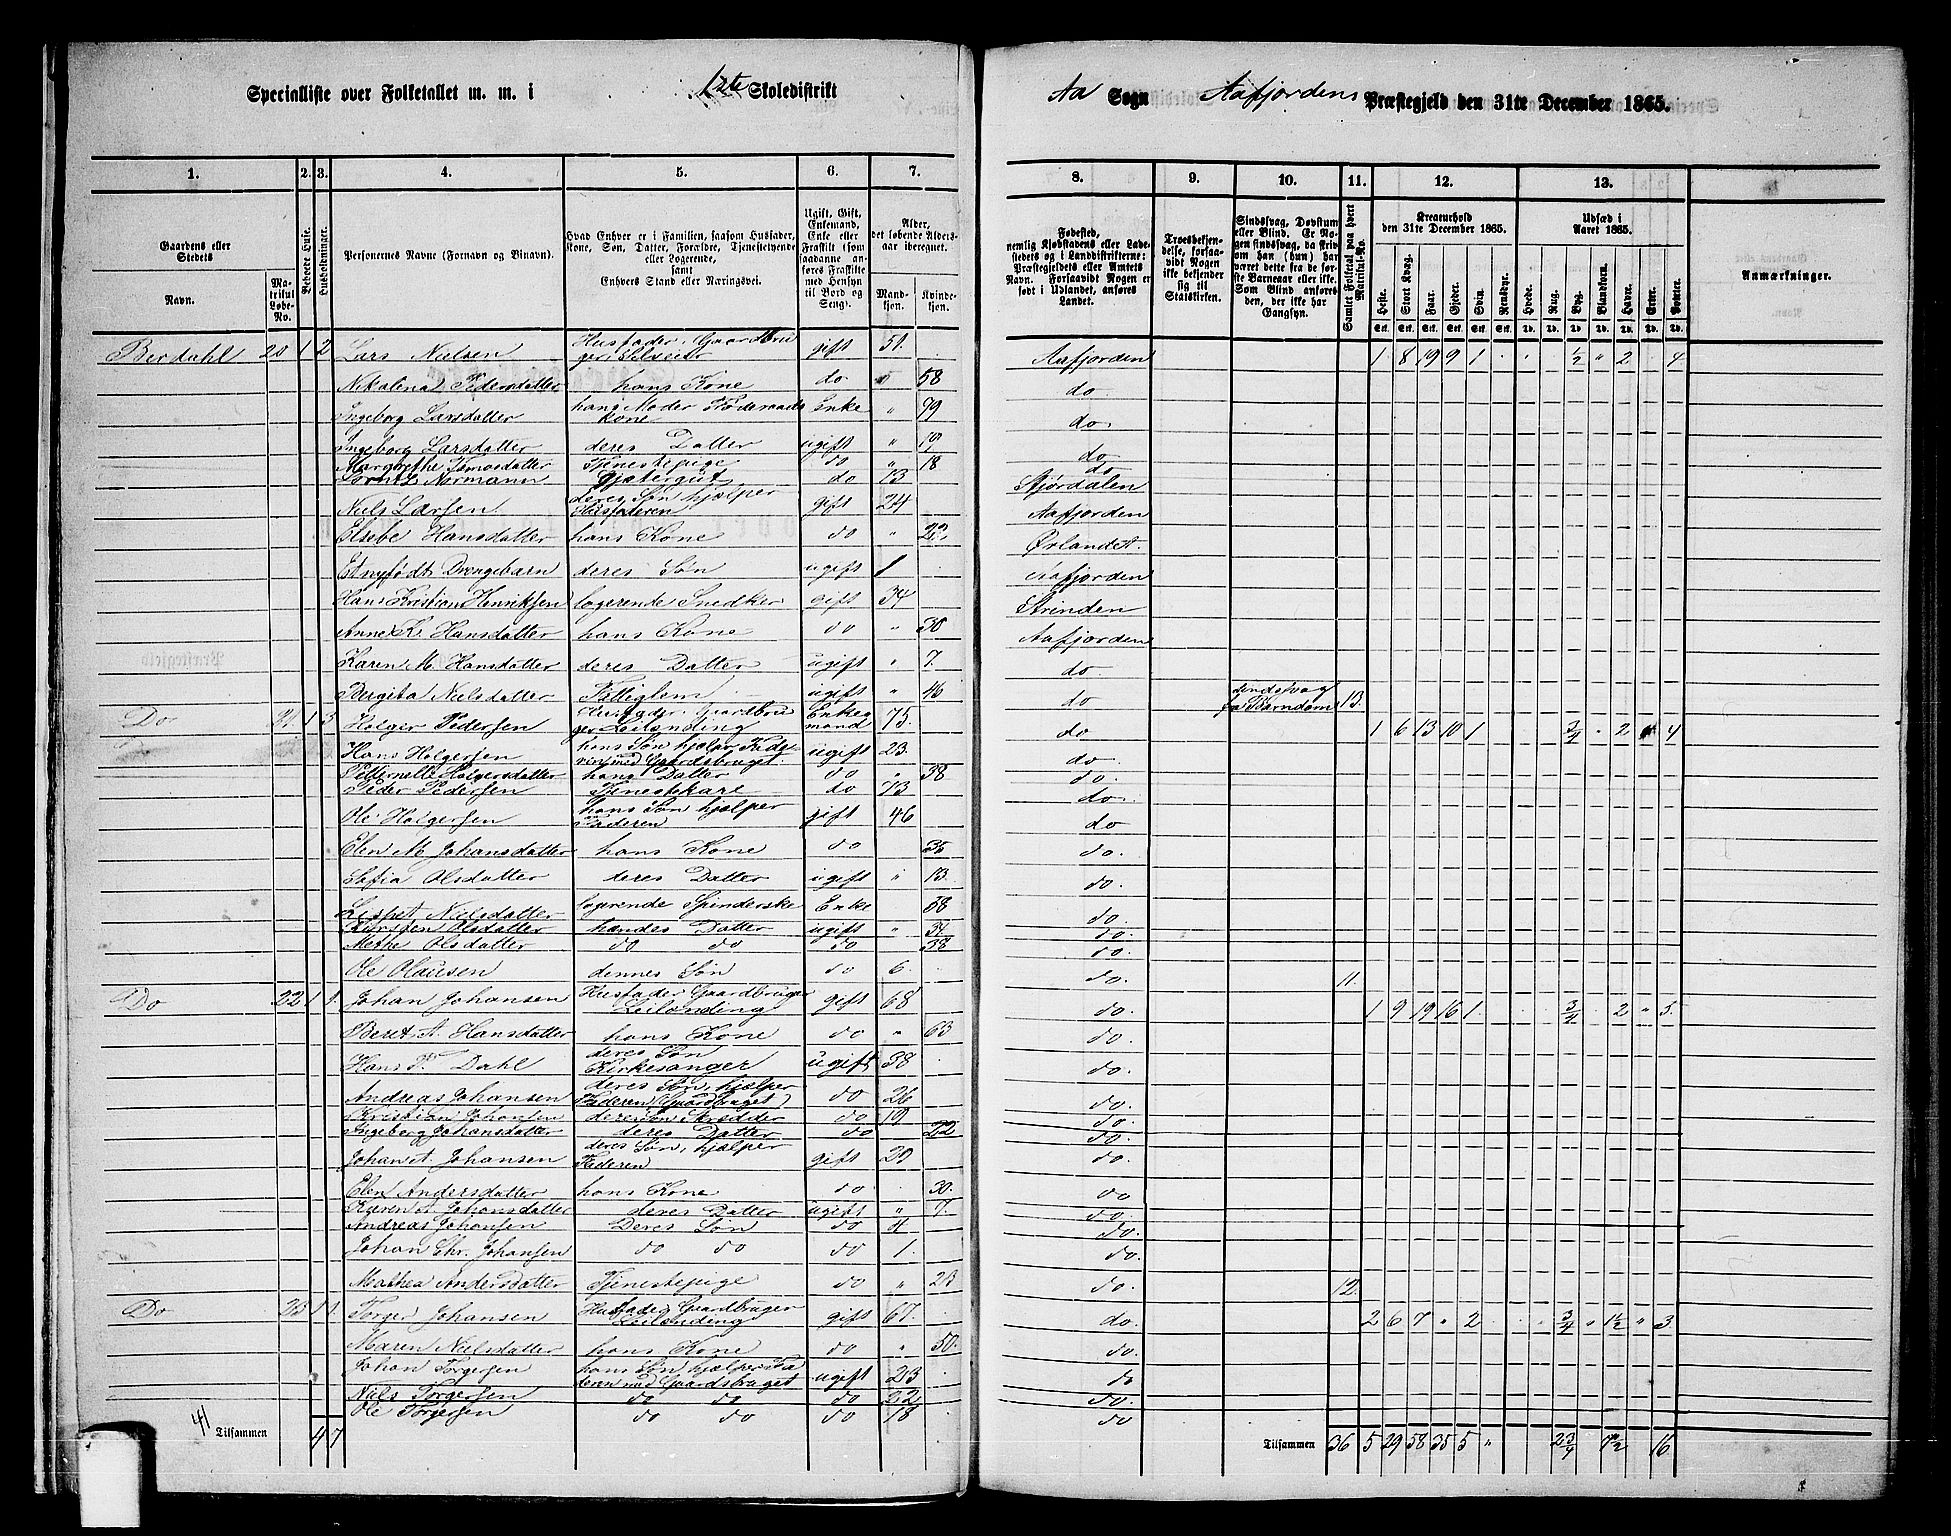 Specialliste over Folketallet m. m. i 1ste Skoledistrikt Aa Sogn Aafjordens Præstegjeld den 31te December 1865.
1. 2. 3. 4. 5. 6. 7. 8. 9. 10. 11. 12. 13.
Gaardens eller Stedets
Navn. Matrikul Løbe-No.
Beboede Huse.
Husholdninger.
Personernes Navne (Fornavn og Binavn).
Hvad Enhver er i Familien, saasom Husfader, Kone, Søn, Datter, Forældre, Tjenestetyende eller Logerende, samt Enhvers Stand eller Næringsvei.
Ugift, Gift, Enkemand, Enke eller Fraskilt (som saadanne anføres Fraskilte med Hensyn til Bord og Seng).
Alder, det løbende Aldersaar iberegnet.
Mandkjøn. Kvindekjøn.
Fødested, nemlig Kjøbstadens eller Ladestedets og i Landdistrikterne: Præstegjeldets eller Amtets Navn. Forsaavidt Nogen er født i Udlandet, anføres Landet.
Troesbekjendelse, forsaavidt Nogen ikke bekjender sig til Statskirken.
Sindssvag, Døvstum eller Blind. Er Nogen sindssvag, da skrives om han (hun) har været dette fra de første Barneaar eller ikke. Som Blind anføres den, der ikke har Gangsyn.
Samlet Folketal paa hvert Matrikul-No.
Kreaturhold den 31te December 1865.
Heste. Stort Kvæg. Faar. Gjeder. Svin. Rensdyr.
Udsæd i Aaret 1865.
Hvede. Rug. Byg. Blandkorn. Havre. Erter. Poteter.
Anmærkninger.
Berdahl 20 1 2 Lars Nielsen Husfader, Gaardbruger Selveier gift 51. Aafjorden 1 8 19 9 1 1/2 " 2 4
Nikolena Pedersdatter hans Kone do " 58 do
Ingeborg Larsdatter hans Moder Føderaadskone Enke " 79 do
Ingeborg Larsdatter deres Datter ugift " 19 do
Margrethe Tomasdatter Tjenestepige do " 18 do
Normann Gjætergut do 13 Stjørdalen
Niels Larsen deres Søn hjælper Husfaderen gift 24 Aafjorden
Elsebe Hansdatter hans Kone do " 22 Ørlandet.
Et nyfødt Drengebarn deres Søn ugift 1 Aafjorden
Hans Kristian Henriksen logerende Snedker gift 34 Strinden
Anne K. Hansdatter hans Kone do " 30 Aafjorden
Karen M. Hansdatter deres Datter ugift " 7. do
Bergita Nielsdatter Fattiglem ugift " 46 do sindssvag fra Barndom 13.
Do 21 1 3 Holger Pedersen Husfader, Gaardbruger Leilænding Enkemand 75. do 1 6 13 10 1 3/4 2 4
Hans Holgersen hans Søn hjælper Faderen med Gaardsbruget ugift 23 do
Petternelle Holgersdatter hans Datter do " 38 do
Peder Pedersen Tjenestekarl do 73 do
Ole Holgersen hans Søn hjælper Faderen gift 46 do
Elen M Johansdatter hans Kone do 35 do
Sofia Olsdatter deres Datter ugift " 13. do
Lispet Nielsdatter logerende Spinderske Enke 58 do
Kirsten Olsdatter hendes Datter ugift " 34 do
Methe Olsdatter do do do 38 do
Ole Olausen dennes Søn do 6. do 11.
Do 22 1 1. Johan Johansen Husfader Gaardbruger Leilænding gift 68 do. 1 9 19 16 1. 3/4 2 " 5.
Beret A. Hansdatter hans Kone do " 63 do.
Hans P. Dahl deres Søn Kirkesanger ugift 38 do.
Andreas Johansen deres Søn, hjælper Faderen (Gaardbruget) do 26 do.
Kristian Johansen deres Søn Skrædder do 19 do.
Ingeborg Johansdatter deres Datter do 22 do.
Johan A. Johansen deres Søn, hjælper Faderen gift 29 do.
Elen Andersdatter hans Kone do 30. do
Karen A. Johansdatter deres Datter ugift " 7. do.
Andreas Johansen Deres Søn do 4 do.
Johan Chr. Johansen do do do 1. do.
Mathea Andersdatter Tjenestepige do " 23 do. 12.
Do 23 1 1. Torger Johansen Husfader, Gaardbruger Leilænding gift 67. do. 2 6 7 " 2 3/4 " 1 1/2 " 3
Maren Nielsdatter hans Kone do " 50. do.
Johan Torgersen hans Søn hjælper Faderen med Gaardsbruget ugift 23 do
Niels Torgersen do do do 22 do.
Ole Torgersen do do do 18 do
41 Tilsammen 4 7 Tilsammen 36 5 29 58 35 5 " 2 3/4 7 1/2 16